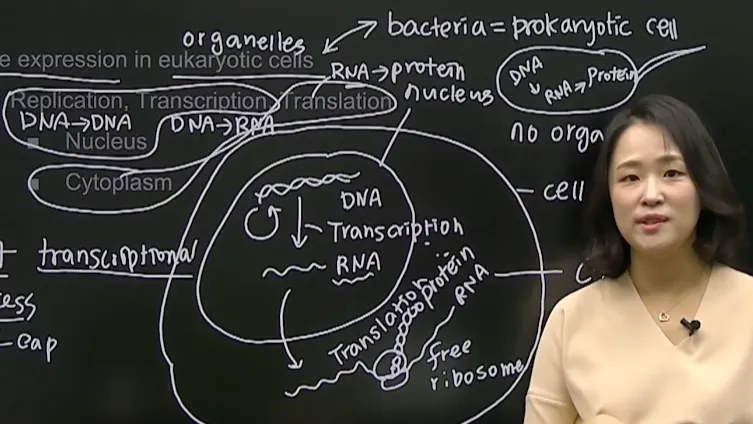 bacteria = prokaryotic cell
organelles
e expression in eukaryotic cells
RNA → protein
DNA
↓ RNA → Protein
nucleus
Replication, Transcription, Translation
DNA → DNA DNA → RNA
no orga
Nucleus
Cytoplasm
cell
DNA
Transcription
RNA
transcriptional
Translation
protein
RNA
cap
free
ribosome